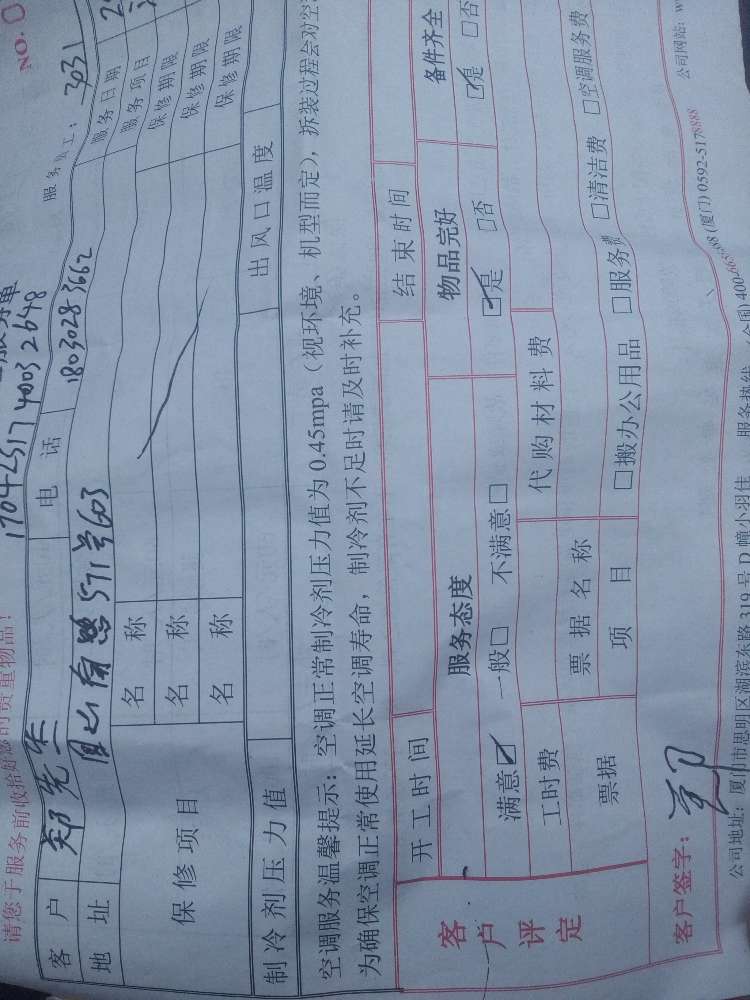 NO.
17042517 4003 2648
请您于服务前收拾好您的贵重物品!
服务员工: 3031
客 户 郑先生 电 话 180 3028 3662 服务日期
地 址 571号603 服务项目
保修项目 名 称 保修期限
名 称 保修期限
名 称 保修期限
制冷剂压力值 出风口温度
空调服务温馨提示: 空调正常制冷剂压力值为 0.45mpa(视环境、机型而定), 拆装过程会对空
为确保空调正常使用延长空调寿命, 制冷剂不足时请及时补充。
开工时间 结束时间
客户评定 服务态度 物品完好 备件齐全
满意☑ 一般□ 不满意□ ☑是 □否 ☑是 □否
工时费 代购材料费
票据 票据名称
项 目 □搬办公用品 □服务费 □清洁费 □空调服务费
客户签字:
公司地址: 厦门市思明区湖滨东路 319 号 D 幢小羽佳 服务热线: (厦门) 0592-5178888 公司网站: w